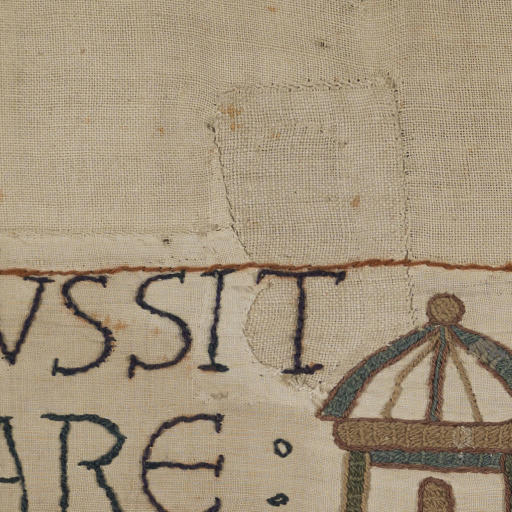 VSSIT
ARE :